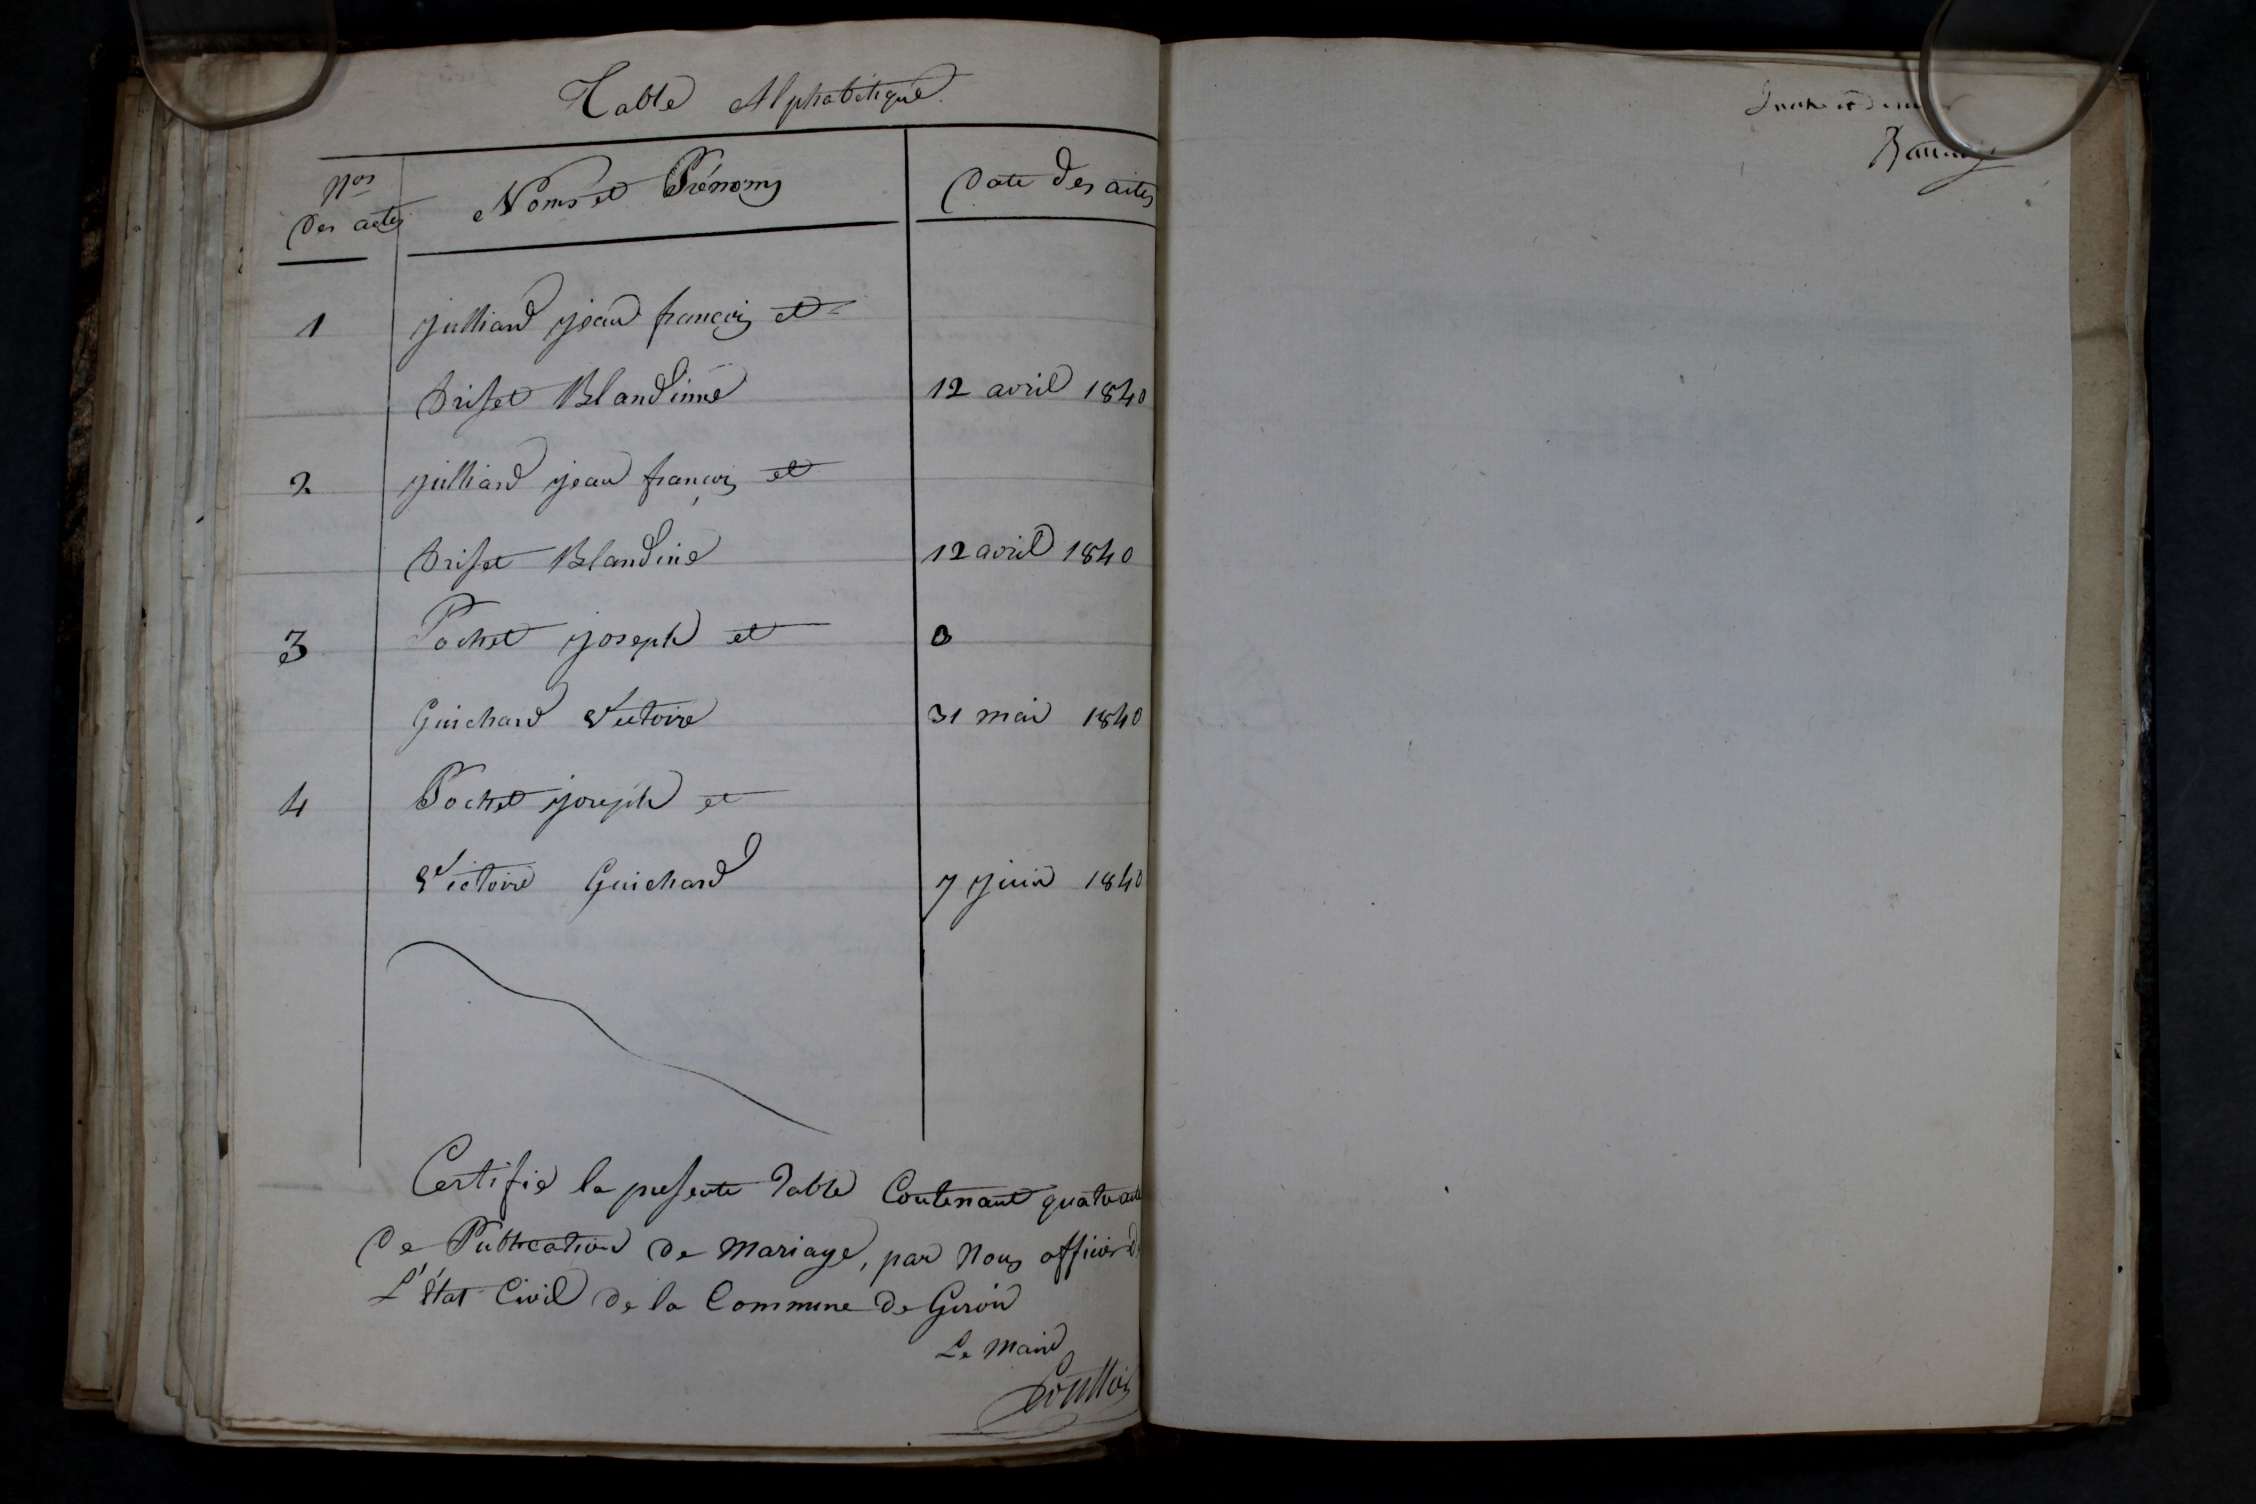 Table Alphabétique
Nos des actes
Noms et Prénoms
Date des actes
1 Julliard jean françois et
Driset Blandinne 12 avril 1840
2 Julliard jean françois et
Driset Blandine 12 avril 1840
3 Pochet joseph et
Guichard Victoire 31 mai 1840
4 Pochet joseph et
Victoire Guichard 7 juin 1840
Certifié la presente Table Contenant quatre actes
De Publication de Mariage, par Nous officier de
L'état Civil de la Commune de Giron
Le Maire